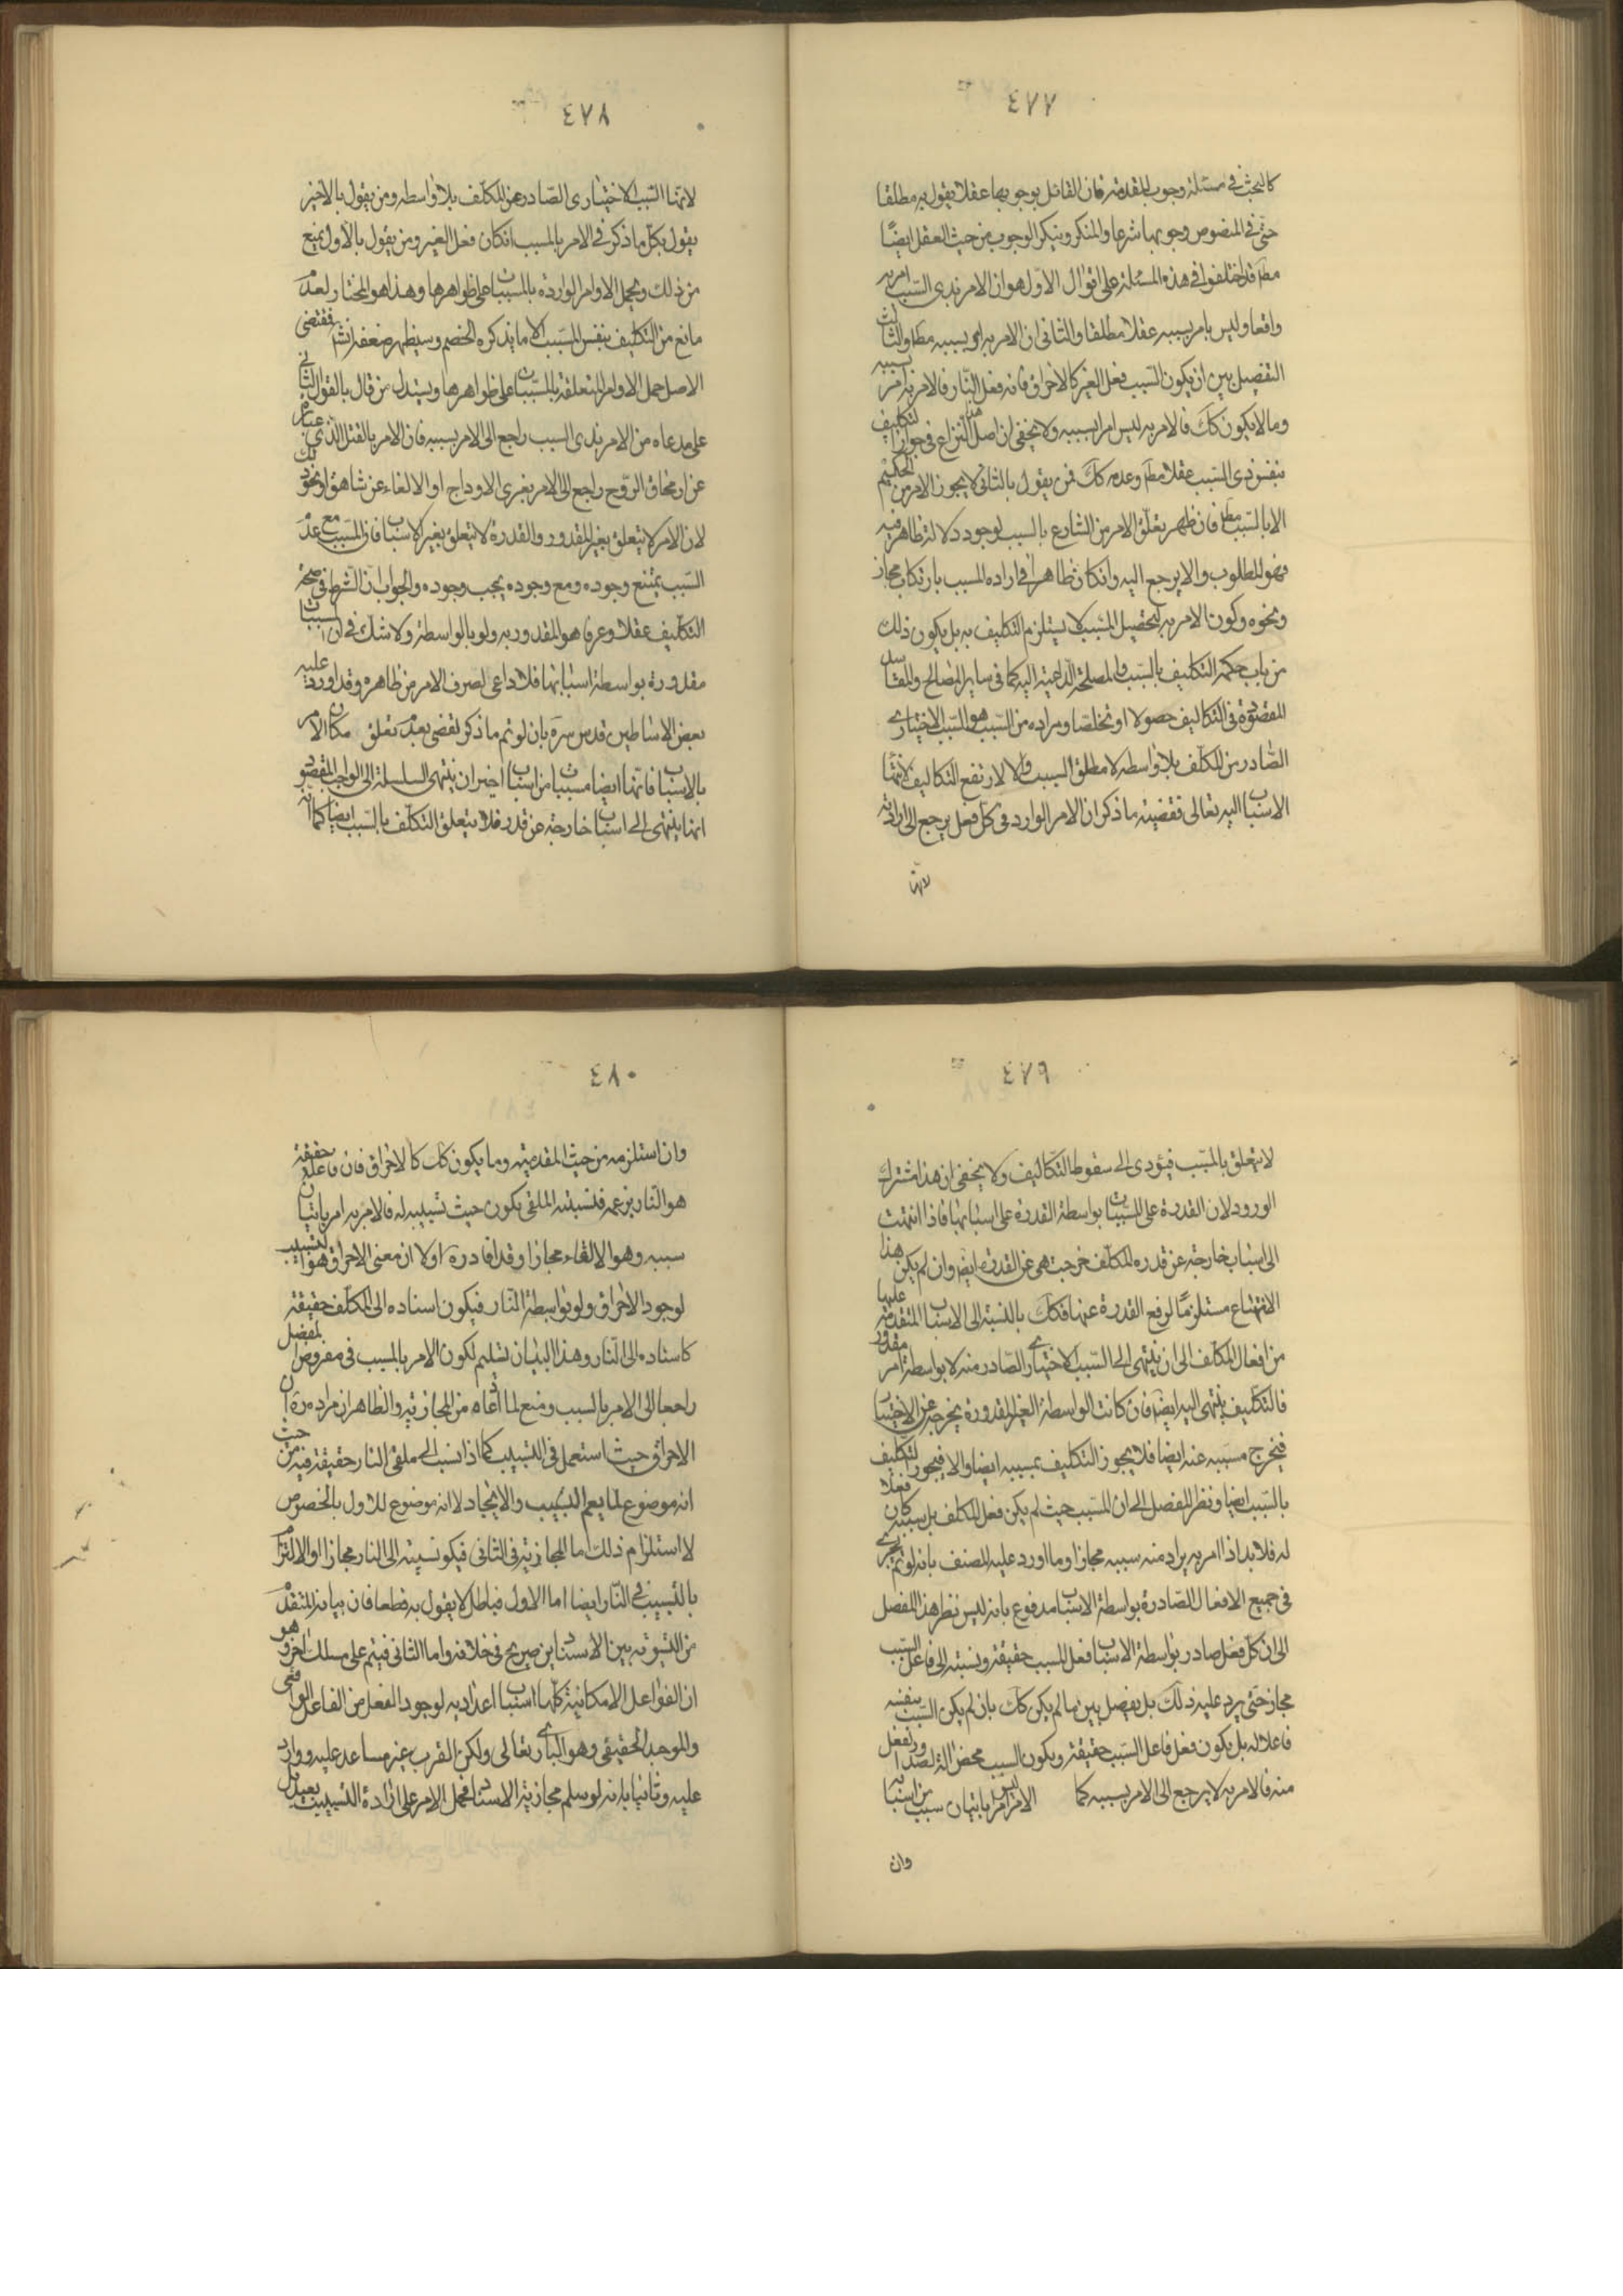 ٤٧٧
كالبحث في مسئلة وجوب المقدمة فان القائل بوجوبها عقلا يقول به مطلقا
حتى في المنصوص وجوبها شرعا والمنكر وينكر الوجوب من حيث العقل ايضًا
مطم قد اختلفوا في هذه المسئلة على اقوال الاول هو ان الامر بذى السبب امر به
واقعا وليس بامر بسببه عقلا مطلقا والثانى ان الامر به امر بسببه مطم والثالث
التفصيل بين ان يكون السبب فعل الغير كالاحراق فانه فعل النار فالامر به امر بسببه
وما لا يكون كك فالامر به ليس امرا بسببه ولا يخفى ان اصل النزاع في جواز التكليف
بنفس ذى السبب عقلا مطم وعدمه كك فمن يقول بالثانى لا يجوز الامر من الحكيم
الا بالسبب مطم فان ظهر تعلق الامر من الشارع بالسبب لوجود دلالة ظاهر فيه
فهو المطلوب والا يرجع اليه وان كان ظاهرا في اراده المسبب بارتكاب مجاز
ونحوه وكون الامر به لتحصيل المسبب لا يستلزم التكليف به بل يكون ذلك
من باب حكمة التكليف بالسبب والمصلحة الداعية اليه كما في ساير المصالح والمفاسد
المقصودة في التكاليف حصولا او تخلصا ومراده من السبب هو السبب الاختيارى
الصادر من المكلف بلا واسطه لا مطلق السبب والا لارتفع التكاليف لانتهاء
الاسباب اليه تعالى فقضية ما ذكر ان الامر الوارد في كل فعل يرجع الى ارادة
لانها
٤٧٨
لانها السبب الاختيارى الصادر عن المكلف بلا واسطه ومن يقول بالاخير
يقول بكل ما ذكر في الامر بالمسبب ان كان فعل الغير ومن يقول بالاول يمنع
من ذلك ويحمل الاوامر الواردة بالمسببات على ظواهرها وهذا هو المختار لعدم
مانع من التكليف بنفس المسبب الا ما يذكره الخصم وسيظهر ضعفه انشا فمقتضى
الاصل حمل الاوامر المتعلقة بالمسببات على ظواهرها ويستدل من قال بالقول الثانى
على مدعاه من الامر بذى السبب راجع الى الامر بسببه فان الامر بالقتل الذى عبارة
عن ازهاق الروح راجع الى الامر بفرى الاوداج او الالقاء عن شاهق او نحو ذلك
لان الامر لا يتعلق بغير المقدور والقدرة لا تتعلق بغير الاسباب فان المسبب مع عدم
السبب يمتنع وجوده ومع وجوده يجب وجوده والجواب ان الشرط في صحة
التكليف عقلا وعرفا هو المقدوريه ولو بالواسطه ولا شك في ان المسببات
مقدورة بواسطة اسبابها فلا داعى لصرف الامر من ظاهره وقد اورد عليه
بعض الاساطين قدس سره بان لو تم ما ذكر لقضى بعدم تعلق مكان الامر
بالاسباب فانها ايضا مسببات من اسباب اخر ان ينتهى السلسلة الى الواجب المقصود
انها ينتهى الى اسباب خارجة عن قدر فلا يتعلق التكليف بالسبب ايضا كما انه
٤٧٩
لا يتعلق بالمسبب فيؤدى الى سقوط التكاليف ولا يخفى ان هذا مشترك
الورود لان القدرة على المسببات بواسطة القدرة على اسبابها فاذا انتهت
الى اسباب خارجة عن قدره المكلف خرجت هى عن القدرة ايضا وان لم يكن هذا
الانتهاء مستلزمًا لرفع القدرة عنها فكك بالنسبة الى الاسباب المتقدمة عليها
من افعال المكلف الى ان ينتهى الى السبب الاختيارى الصادر منه لا بواسطة امر مقدور
فالتكليف ينتهى اليه ايضا فان كانت الواسطة الغير المقدورة يخرجه عن الاختيار
فيخرج مسببه عنه ايضا فلا يجوز التكليف بمسببه ايضا والا فيجوز التكليف
بالسبب ايضا ونظر المفصل الى ان المسبب حيث لم يكن فعل المكلف بل سببه كان فعلا
له فلا بد اذا امر به يراد منه سببه مجازا وما اورد عليه المصنف بانه لو تم لجرى
في جميع الافعال الصادرة بواسطة الاسباب مدفوع بانه ليس نظر هذا المفصل
الى ان كل فعل صادر بواسطة الاسباب فعل السبب حقيقة ونسبته الى فاعل السبب
مجاز حتى يرد عليه ذلك بل يفصل بين ما لم يكن كك بان لم يكن السبب بنفسه
فاعلا له بل يكون فعل فاعل السبب حقيقة ويكون السبب محض الة لصدور الفعل
منه فالامر به لا يرجع الى الامر بسببه كما الامر امر باتيان سبب من اسبابه
وان
٤٨٠
وان استلزمه من حيث المقدميه وما يكون كك كالاحراق فان فاعله حقيقة
هو النار بزعمه فنسبته الملقى يكون حيث تسبيبه له فالامر به امر باتيان
سببه وهو الالقاء مجازا وقد افاد ره اولا ان معنى الاحراق هو التسبيب
لوجود الاحراق ولو بواسطة النار فيكون اسناده الى المكلف حقيقة
كاسناده الى النار وهذا البيان تسليم لكون الامر بالمسبب في مفروض المفصل
راجعا الى الامر بالسبب ومنع لما ادعاه من المجازية والظاهر ان مراده ره ان
الاحراق حيث استعمل في التسبيب كما اذا نسب الى ملقى النار حقيقة فيه من حيث
انه موضوع لما يعم التسبيب والايجاد لا انه موضوع للاول بالخصوص
لاستلزام ذلك اما المجازية في الثانى فيكون نسبته الى النار مجازا او الالتزام
بالتسبيب في النار ايضا اما الاول فباطل لا يقول به قطعا فان بيانه المتقدم
من التسوية بين الاسنادين صريح في خلافه واما الثانى فيتم على مسلك اخر وهو
ان الفواعل الامكانية كلها اسباب اعداديه لوجود الفعل من الفاعل الواقعى
والموجد الحقيقى وهو البارى تعالى ولكن القرب غير مساعد عليه ووارد
عليه وثانيا بانه لو سلم مجازية الاسناد فحمل الامر على ارادة التسبيب بعيد بل